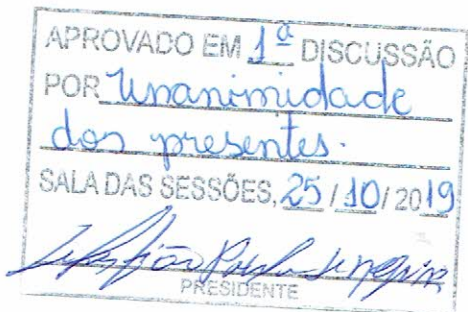 APROVADO EM 1ª DISCUSSÃO
POR Unanimidade
dos presentes.
SALA DAS SESSÕES, 25 / 10 / 2019
PRESIDENTE